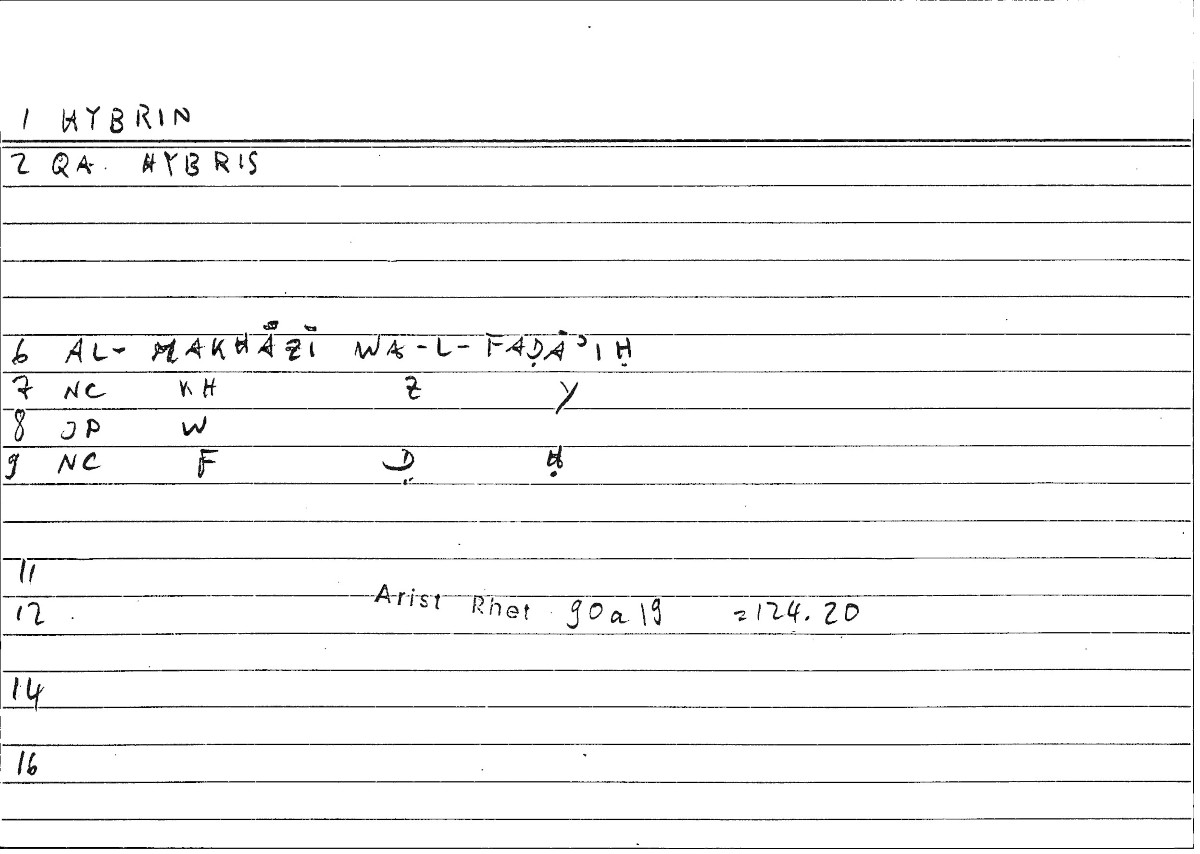 1 HYBRIN
2 QA. HYBRIS
6 AL- MAKHĀZĪ WA-L-FAḌĀʾIḤ
7 NC KH Z Y
8 JP W
9 NC F Ḍ Ḥ
11
12 Arist Rhet 90a19 =124.20
14
16